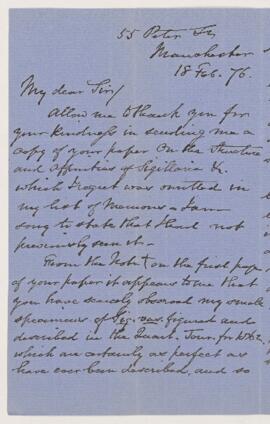 55 Peter St,
Manchester
18 Feb. 76.
My dear Sir/
Allow me to thank you for
your kindness in sending me a
copy of your paper On the Structure
and Affinities of Sigillaria &c
which I regret was omitted in
my list of Memoirs – I am
sorry to state that I had not
previously seen it –
From the Note on the first page
of your paper it appears to me that
you have scarcely observed my small
specimens of Sig. vas. figured and
described in the Quart. Jour. for 1862
which are certainly as perfect as
have ever been described, and so